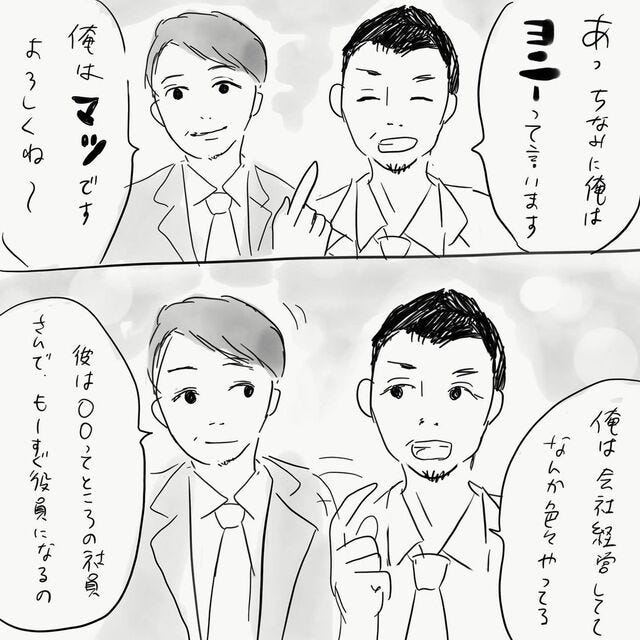 あっちなみに俺は
ヨニーって言います
俺はマツです
よろしくね〜
俺は会社経営してて
なんか色々やってる
彼は〇〇ってところの社員
さんで、もーすぐ役員になるの